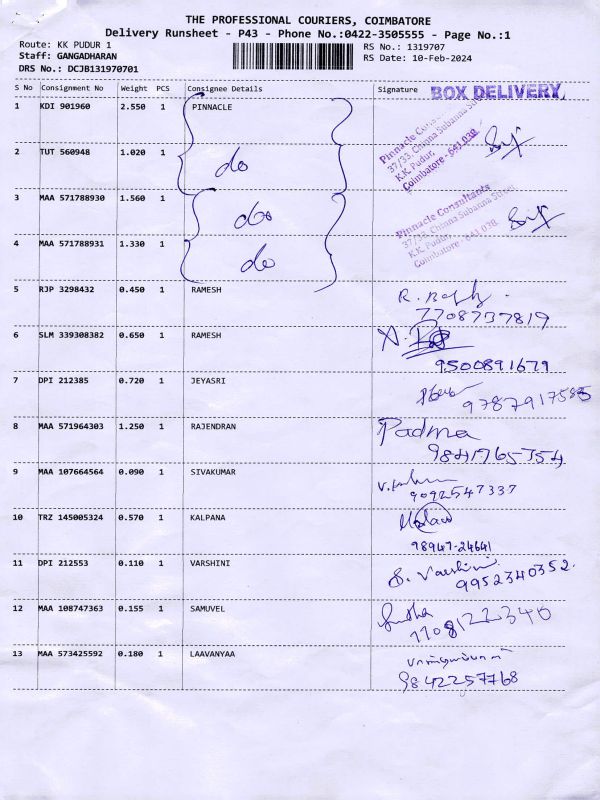 THE PROFESSIONAL COURIERS, COIMBATORE
Delivery Runsheet - P43 - Phone No.:0422-3505555 - Page No.:1
Route: KK PUDUR 1 RS No.: 1319707
Staff: GANGADHARAN RS Date: 10-Feb-2024
DRS No.: DCJB131970701
S No Consignment No Weight PCS Consignee Details Signature BOX DELIVERY
1 KDI 901960 2.550 1 PINNACLE
Pinnacle Consultants
37/33, Chinna Subanna Street
K.K. Pudur,
Coimbatore - 641 038
2 TUT 560948 1.020 1 do
3 MAA 571788930 1.560 1 do
Pinnacle Consultants
37/33, Chinna Subanna Street
K.K. Pudur,
Coimbatore - 641 038.
4 MAA 571788931 1.330 1 do
5 RJP 3298432 0.450 1 RAMESH
7708737819
6 SLM 339308382 0.650 1 RAMESH
9500891679
7 DPI 212385 0.720 1 JEYASRI
8 MAA 571964303 1.250 1 RAJENDRAN Padma
9841765354
9 MAA 107664564 0.090 1 SIVAKUMAR
9092547337
10 TRZ 145005324 0.570 1 KALPANA
98947-24641
11 DPI 212553 0.110 1 VARSHINI S. Varshini
9952340352.
12 MAA 108747363 0.155 1 SAMUVEL Sudha
7708122340
13 MAA 573425592 0.180 1 LAAVANYAA
9842257768